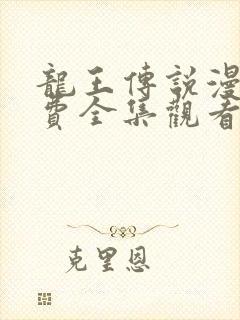 龍王傳說漫
費全集觀看
克里恩